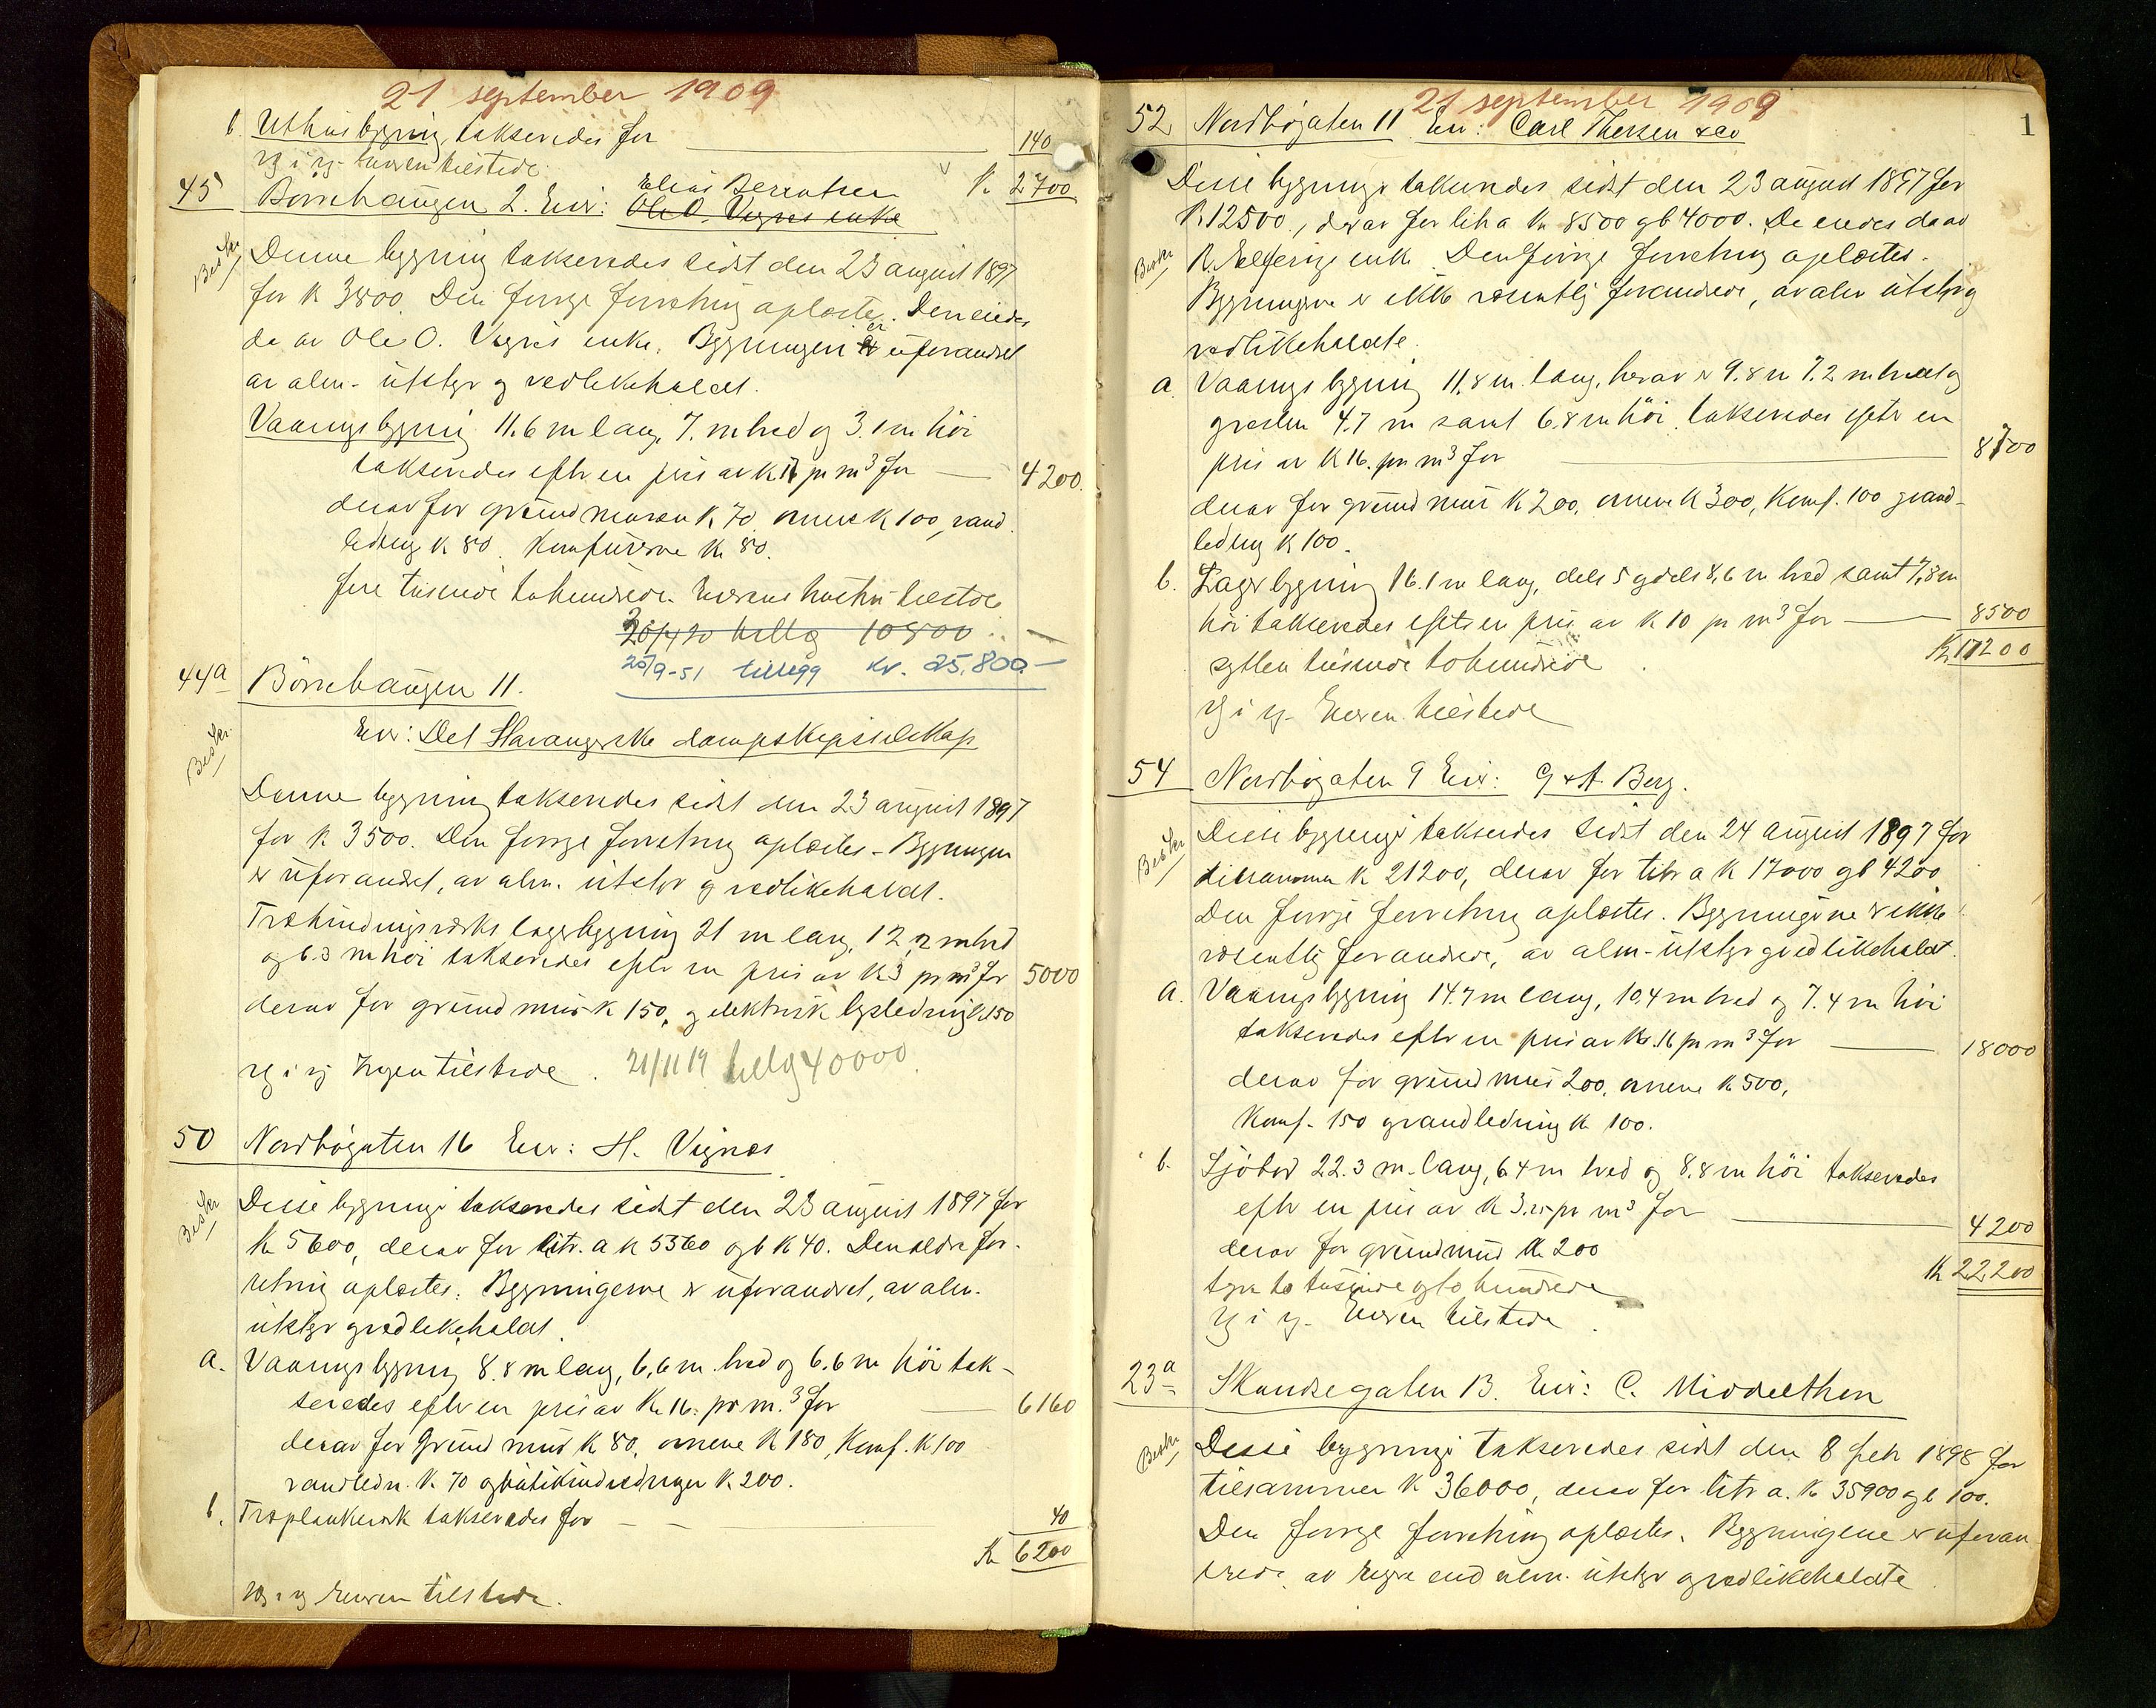 21 september 1909
b. Uthusbygning takseredes for 140
Eieren tilstede. K. 2700
45 Börrehaugen 2. Eier: Elias Berentsen
Ole O. Vignes enke
Beskr. Denne bygning takseredes sidst den 23 august 1897
for K 3800. Den forrige forretning oplæstes. Den eiedes
da av Ole O. Vignes enke. Bygningen er uforandret
av alm. utstyr og vedlikeholdt.
Vaaningsbygning 11.6 m lang, 7. m bred og 3.1 m höi
takseredes efter en pris av K 17 pr m³ for 4200.
derav for grundmuren K 70, ovnene K 100, vand-
ledning K 80. Komfurerne K 80.
fire tusinde tohundrede. Eierens hustru tilstede
20/4 20 tillæg 10800
25/9-51 tillegg kr. 25.800.-
44a Börrehaugen 11.
Beskr. Eier: Det Stavangerske dampskipsselskap
Denne bygning takseredes sidst den 23 august 1897
for K 3500. Den forrige forretning oplæstes - Bygningen
er uforandret, av alm. utstyr og vedlikeholdt.
Træbindingsværks lagerbygning 21 m lang, 12.2 m bred
og 6.3 m höi takseredes efter en pris av K 3 pr m³ for 5000
derav for grundmur K 150, og elektrisk lysledning K 150
Ingen tilstede. 21/11 19 tillæg 40000.
50 Nordbögaten 16 Eier: H. Vignes
Beskr. Disse bygninger takseredes sidst den 23 august 1897 for
K 5600, derav for litr. a K 5560 og b K 40. Den ældre for-
retning oplæstes. Bygningerne er uforandret, av alm.
utstyr og vedlikeholdt.
a. Vaaningsbygning 8.8 m lang, 6.6 m bred og 6.6 m höi tak-
seredes efter en pris av K. 16. pr m.³ for 6160
derav for Grundmur K 80, ovnene K 180, Komf. K 100
vandledn. K. 70 og butikindredninger K. 200.
b. Træplankeverk takseredes for 40
K 6200
Eieren tilstede.
21 september 1909
1
52 Nordbögaten 11 Eier: Carl Thorsen & Co
Disse bygninger takseredes sidst den 23 august 1897 for
K 12500., derav for litr a K 8500 og b 4000. De eiedes da av
Beskr. enke. Den forrige forretning oplæstes.
Bygningerne er ikke væsentlig forandrede, av alm utstyr og
vedlikeholdte.
a. Vaaningsbygning 11.8 m. lang, herav er 9.8 m 7.2 m bredt og
resten 4.7 m samt 6.8 m höi, takseredes efter en
pris av K 16. pr m³ for 8700
derav for grundmur K 200, ovnene K 300, Komf. 100 og vand-
ledning K 100.
b. Lagerbygning 16.1 m lang, dels 5 og dels 8,6 m bred samt 7,8 m
höi takseredes efter en pris av K 10 pr m³ for 8500
sytten tusinde tohundrede K 17200
Eieren tilstede
54 Nordbögaten 9 Eier: G & A. Berg.
Beskr. Disse bygninger takseredes sidst den 24 august 1897 for
tilsammen K 21200, derav for litr a K 17000 og b 4200
Den forrige forretning oplæstes. Bygningerne er ikke
væsentlig forandrede, av alm. utstyr og vedlikeholdt.
a. Vaaningsbygning 14.7 m lang, 10.4 m bred og 7.4 m höi
takseredes efter en pris av Kr. 16 pr m³ for 18000
derav for grundmur 200, ovnene K 500,
Komf. 150 og vandledning K 100.
b. Sjöbod 22.3 m. lang, 6.4 m bred og 8.8 m höi takseredes
efter en pris av K 3.25 pr m³ for 4200
derav for grundmur K 200 K 22,200
tyve to tusinde og to hundrede
Eieren tilstede.
23a Skandsegaten 13. Eier: C. Middelthon
Beskr. Disse bygninger takseredes sidst den 8 feb 1898 for
tilsammen K 36000, derav for litr a. K 35900 og b 100.
Den forrige forretning oplæstes. Bygningene er uforan
drede, av end alm. utstyr og vedlikeholdte